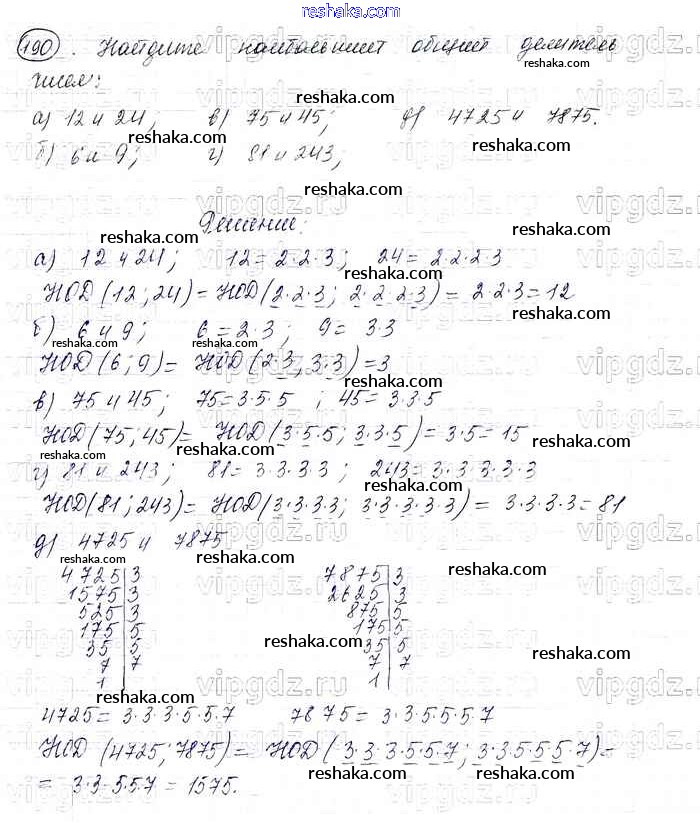 reshaka.com
190. Найдите наибольший общий делитель
чисел:
а) 12 и 24; в) 75 и 45; д) 4725 и 7875.
б) 6 и 9; г) 81 и 243;
Решение:
а) 12 и 24; 12 = 2·2·3; 24 = 2·2·2·3
НОД (12; 24) = НОД (2·2·3; 2·2·2·3) = 2·2·3 = 12
б) 6 и 9; 6 = 2·3; 9 = 3·3
НОД (6; 9) = НОД (2·3, 3·3) = 3
в) 75 и 45; 75 = 3·5·5; 45 = 3·3·5
НОД (75; 45) = НОД (3·5·5; 3·3·5) = 3·5 = 15
г) 81 и 243; 81 = 3·3·3·3; 243 = 3·3·3·3·3
НОД (81; 243) = НОД (3·3·3·3; 3·3·3·3·3) = 3·3·3·3 = 81
д) 4725 и 7875
4725|3 7875|3
1575|3 2625|3
525|3 875|5
175|5 175|5
35|5 35|5
7|7 7|7
1| 1|
4725 = 3·3·3·5·5·7 7875 = 3·3·5·5·5·7
НОД (4725; 7875) = НОД (3·3·3·5·5·7; 3·3·5·5·5·7) =
= 3·3·5·5·7 = 1575.